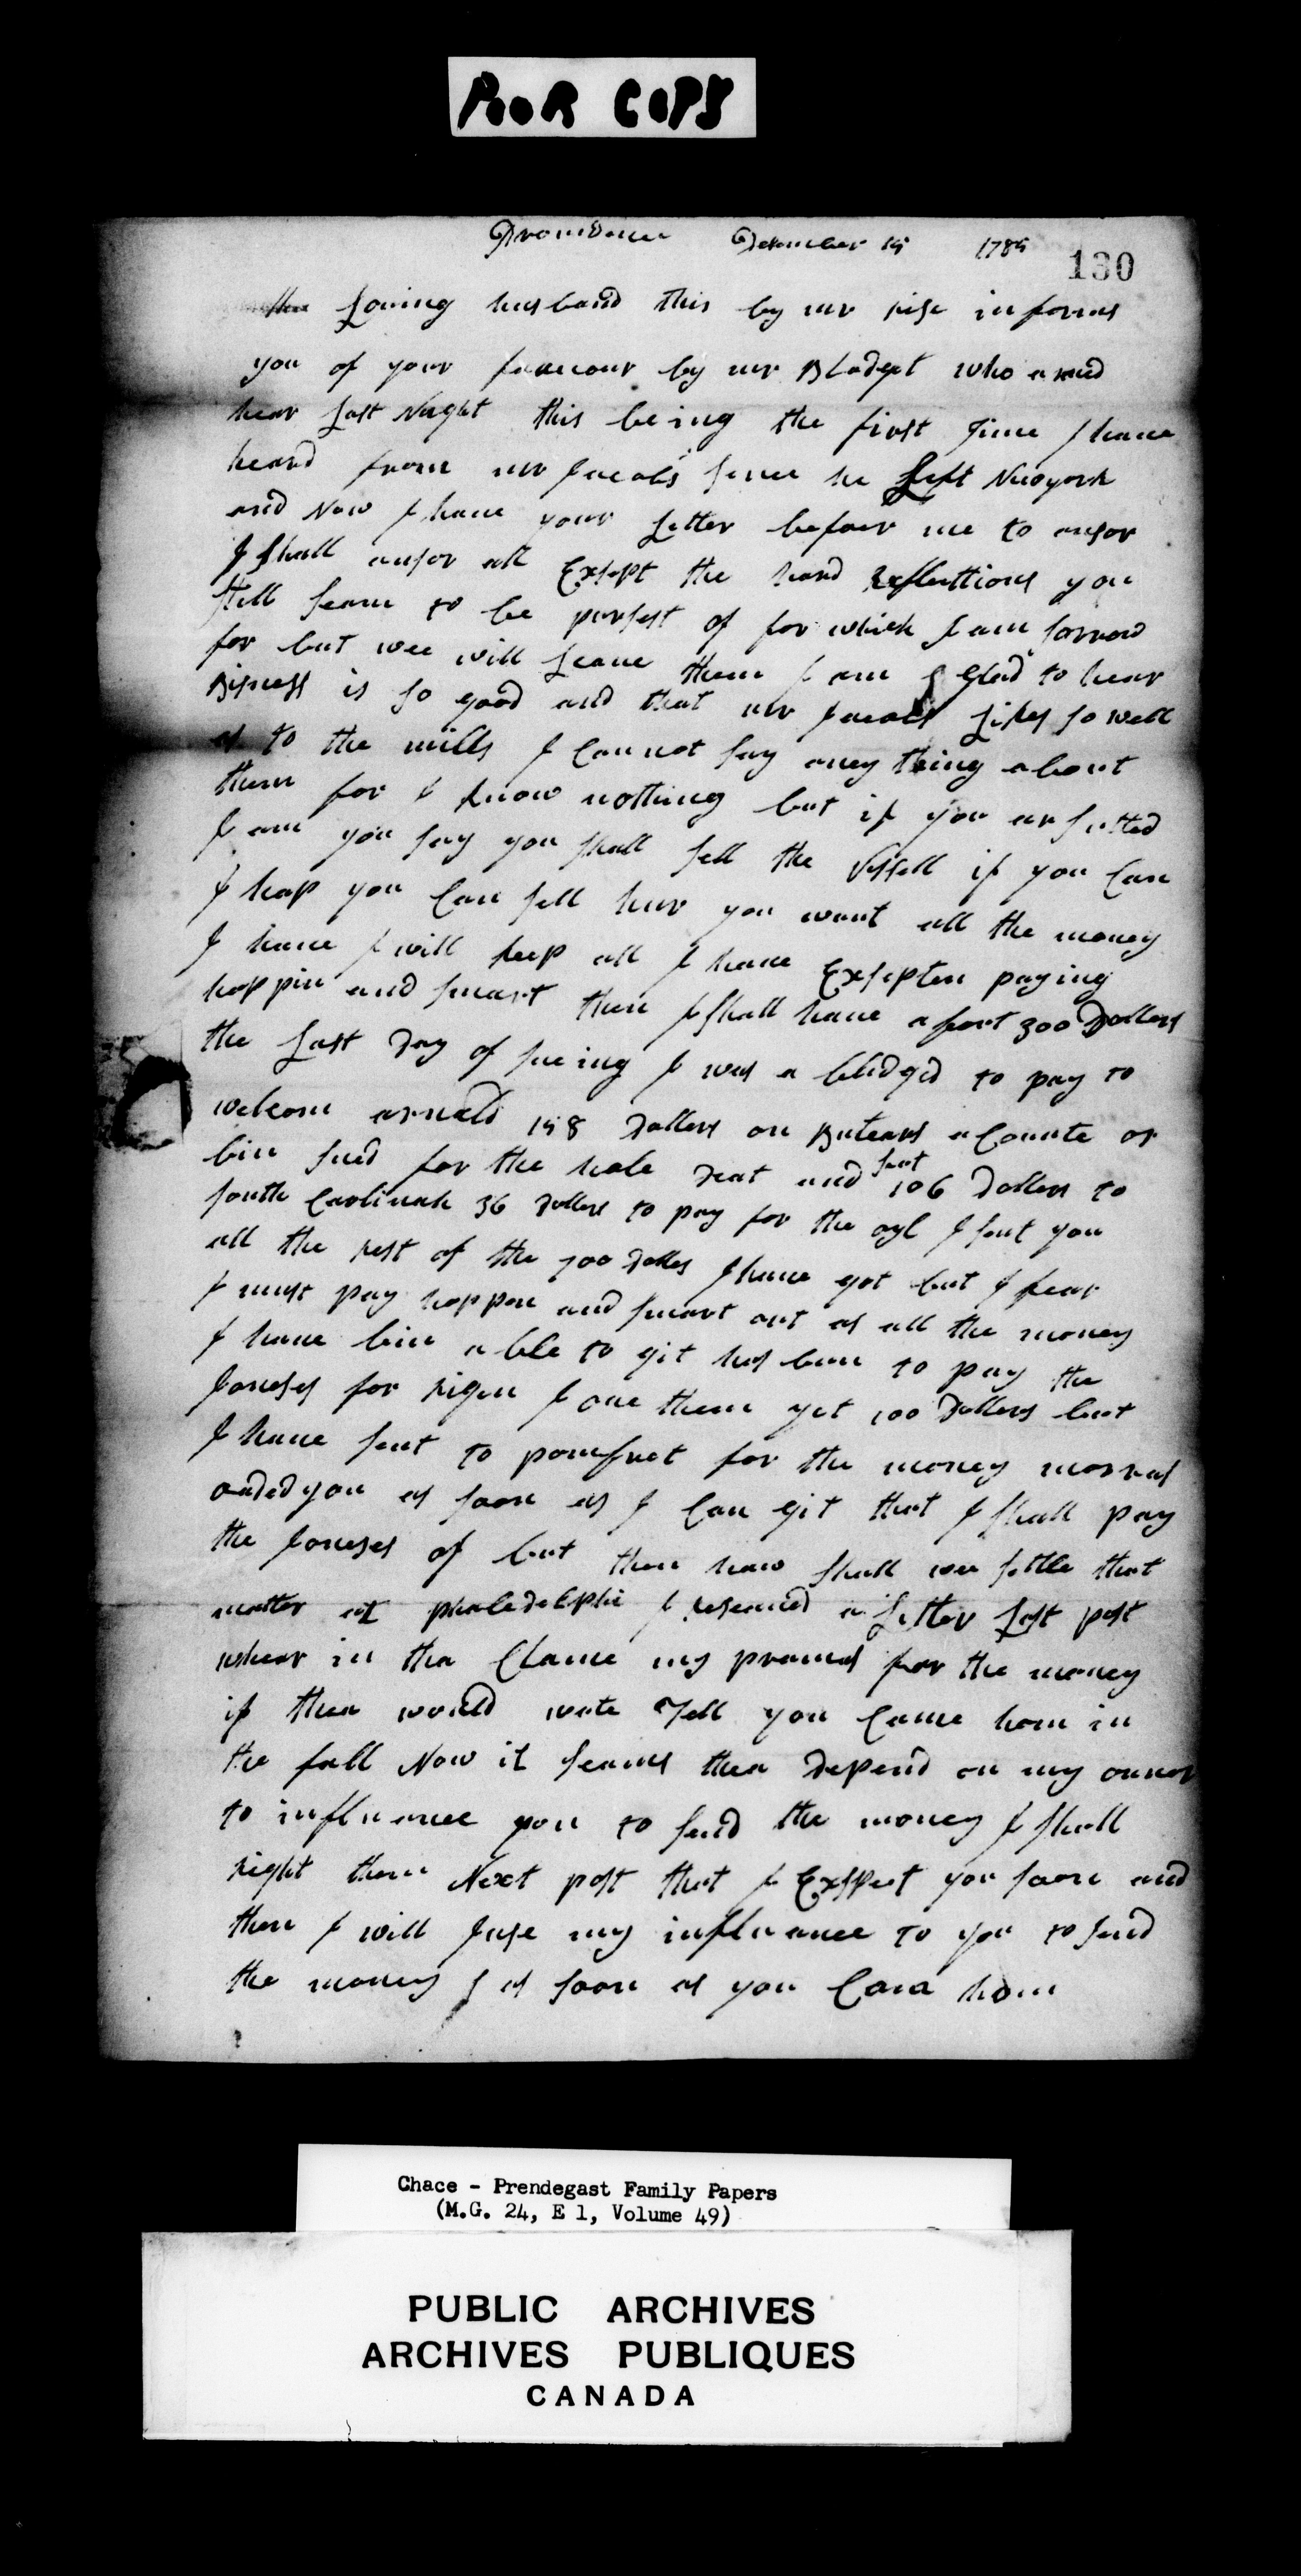 POOR COPY
Providence December 15 1785
130
Loving husband this by mr rise informs
you of your favour by mr Bladget who arived
hear Last Night this being the first Time I have
heard from mr Jacobs sence he Left Newyork
and Now I have your Letter befoer me to ansor
I shall ansor all Exsept the hard Reflecttions you
still seam to be pursest of for which I am sorrow
for but wee will Leave them I am Glad to hear
Bisness is so good and that mr Jacobs Likes so well
as to the mills I Cannot say aney thing about
them for I know nothing but if you ar suted
I am you say you shall sell the Vessell if you Can
I hoap you Can sell hur you want all the money
I have I will keep all I have Exsepten paying
hoppin and smart then I shall have a bout 300 Dollers
the Last Day of sueing I was a blidged to pay to
welcom arnald 158 Dollers on Butears a Counte or
bin sued for the hole Deat and sent 106 Dollers to
south Carolinah 36 Dollers to pay for the oyl I sent you
all the rest of the 700 Dolles I have got but I fear
I must pay hoppen and smart out as all the money
I have bin able to git has ben to pay the
Joneses for rigen I owe them yet 100 Dollers but
I have sent to pomfret for the money morres
oaded you as soon as I Can git that I shall pay
the Joneses of but then how shall wee settle that
matter at phaledelphi I reseaved a Letter Last post
whear in tha Clame my promes for the money
if thea would wate Tell you Came hom in
the fall Now it seams thea Depend on my onnor
to influence you to send the money I shall
right them Next post that I Exspect you soon and
then I will Juse my influence to you to send
the money as soon as you Com hom
Chace - Prendegast Family Papers
(M.G. 24, E 1, Volume 49)
PUBLIC ARCHIVES
ARCHIVES PUBLIQUES
CANADA